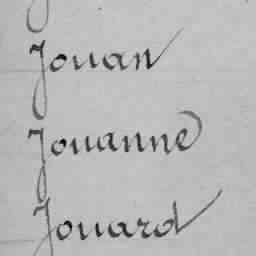 Jouan
Jouanne
Jouard